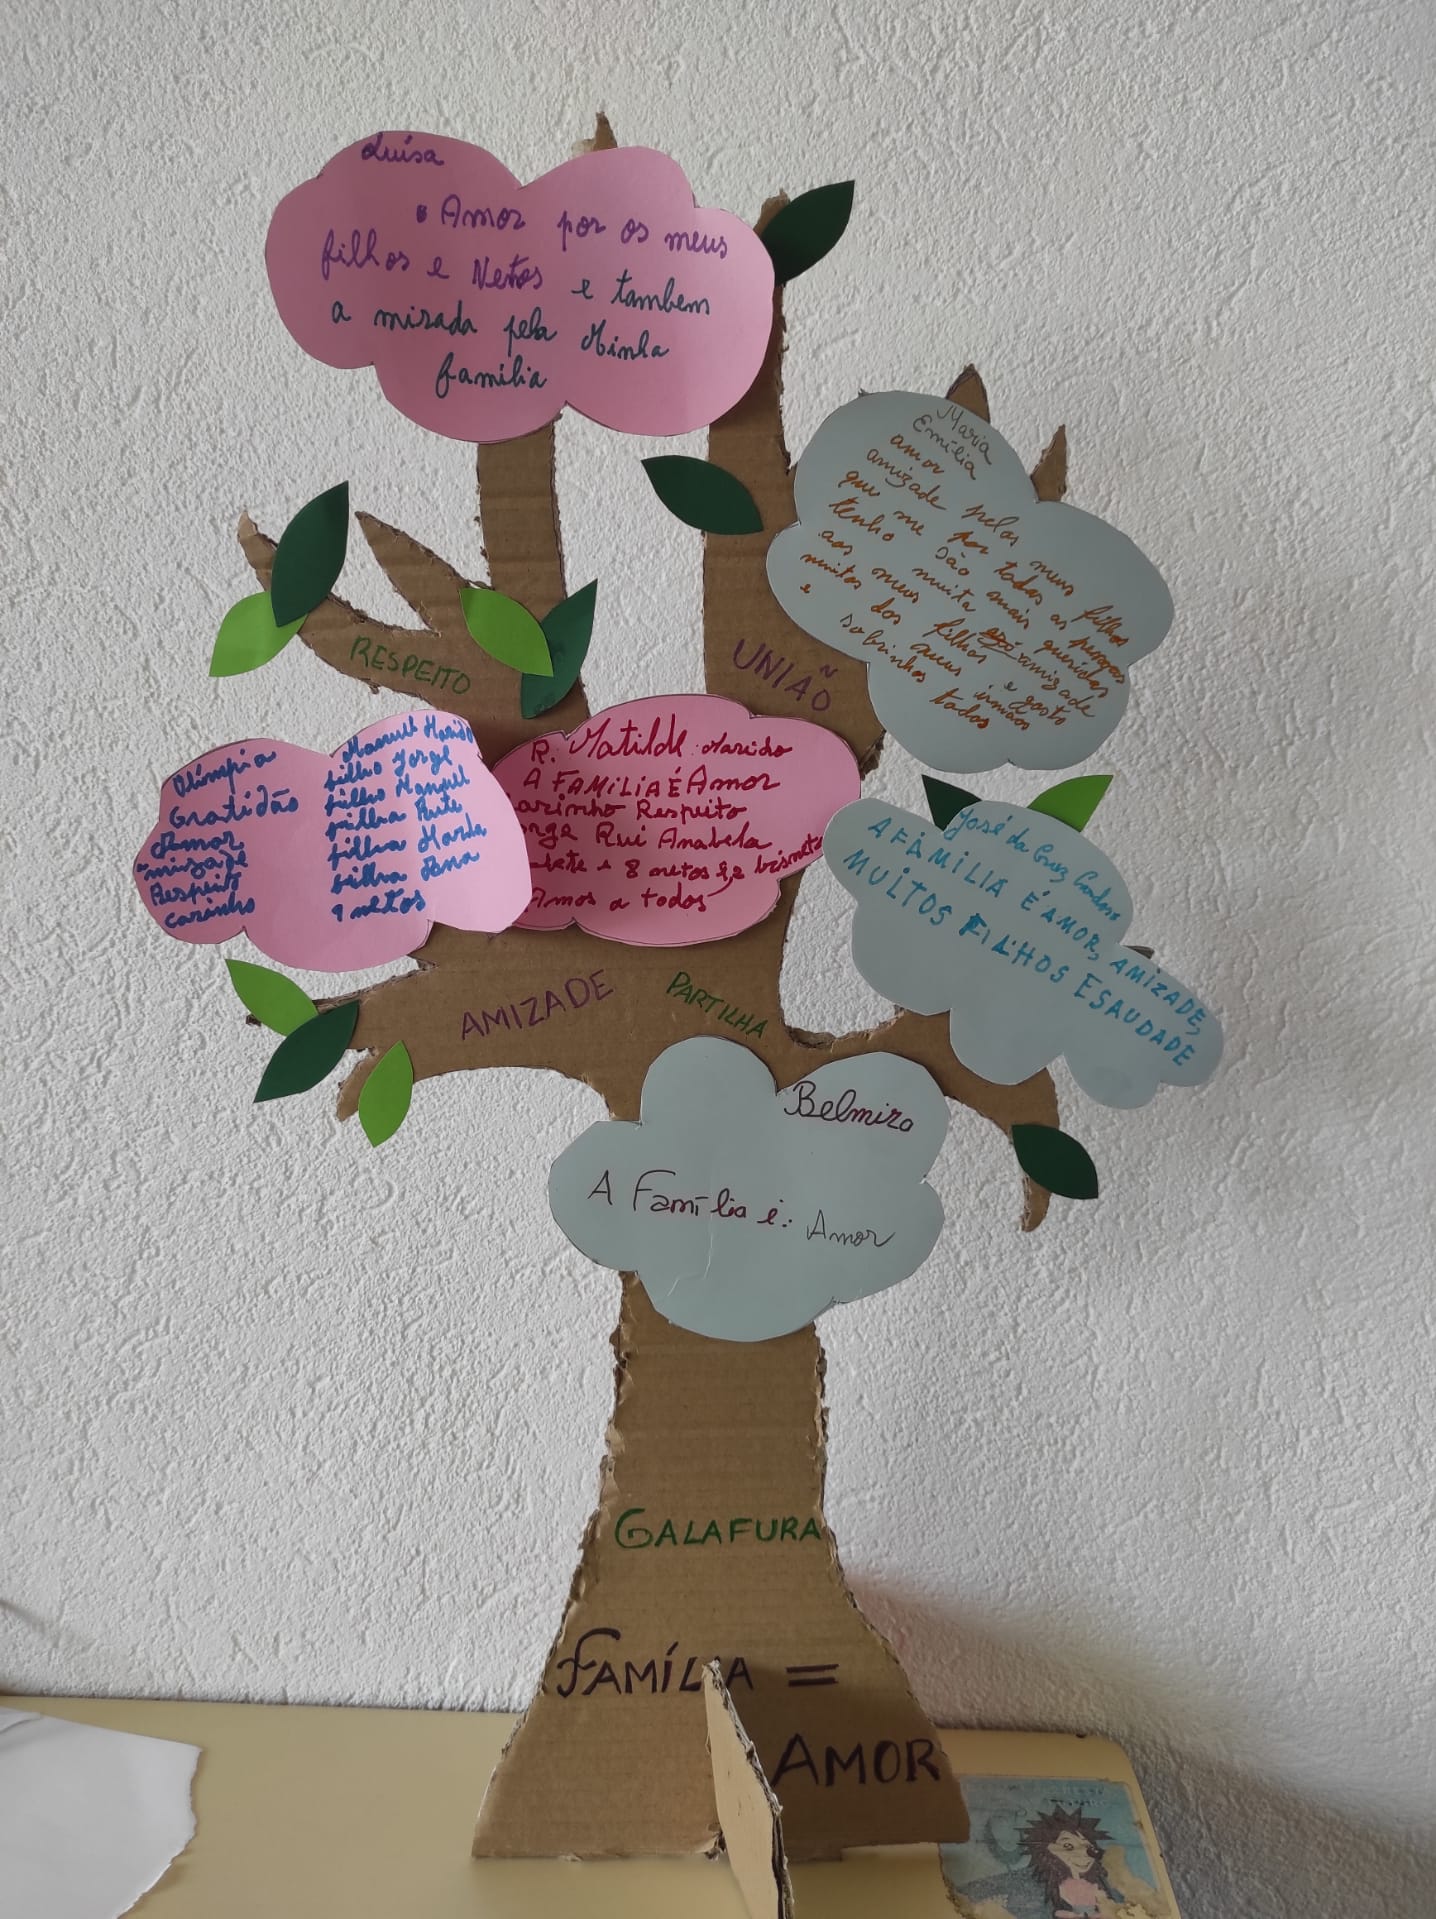 Luísa
Amor por os meus
filhos e Netos e tambem
a mizada pela Minha
família
Maria
Emília
amor
amizade pelos meus filhos
que me por todas as pessoas
tenho são mais queridas
aos meus filhos amizade
muitos dos meus irmãos
e sobrinhos todos
RESPEITO
UNIAÕ
Olímpia
Gratidão
Amor
amizade
Respeito
carinho
Manuel Marido
filho Jorge
filho Manuel
filha Rute
filha Marta
filha Ana
9 netos
R. Matilde Marido
A FAMILIA É Amor
arinho Respeito
orge Rui Anabela
bete e 8 netos e 2 bisnetos
Amos a todos
José da Cruz Cardoso
A FAMILIA É AMOR, AMIZADE,
MUITOS FILHOS E SAUDADE
AMIZADE
PARTILHA
Belmira
A Família é: Amor
GALAFURA
FAMÍLIA =
AMOR